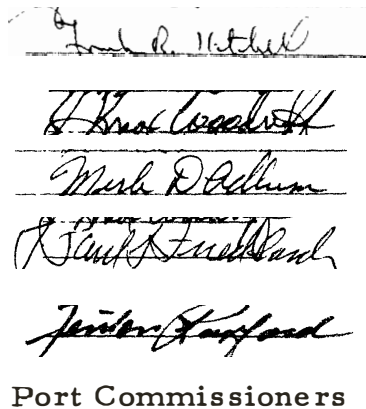 Frank R. Kitchell
J Knox Woodruff
Merle D Adlum
Paul S Friedlander
Fenton Radford
Port Commissioners